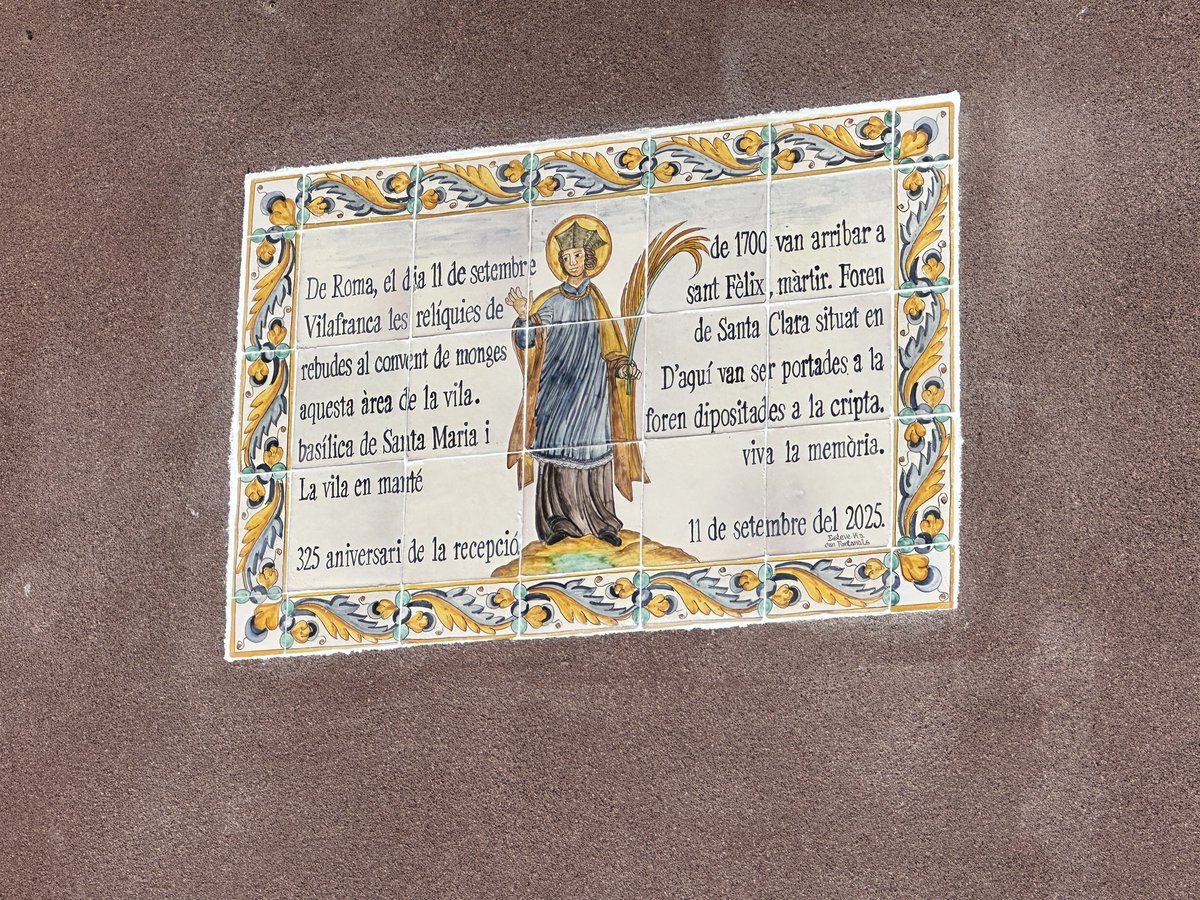 De Roma, el dia 11 de setembre de 1700 van arribar a
Vilafranca les relíquies de sant Fèlix, màrtir. Foren
rebudes al convent de monges de Santa Clara situat en
aquesta àrea de la vila. D'aquí van ser portades a la
basílica de Santa Maria i foren dipositades a la cripta.
La vila en manté viva la memòria.
325 aniversari de la recepció 11 de setembre del 2025.